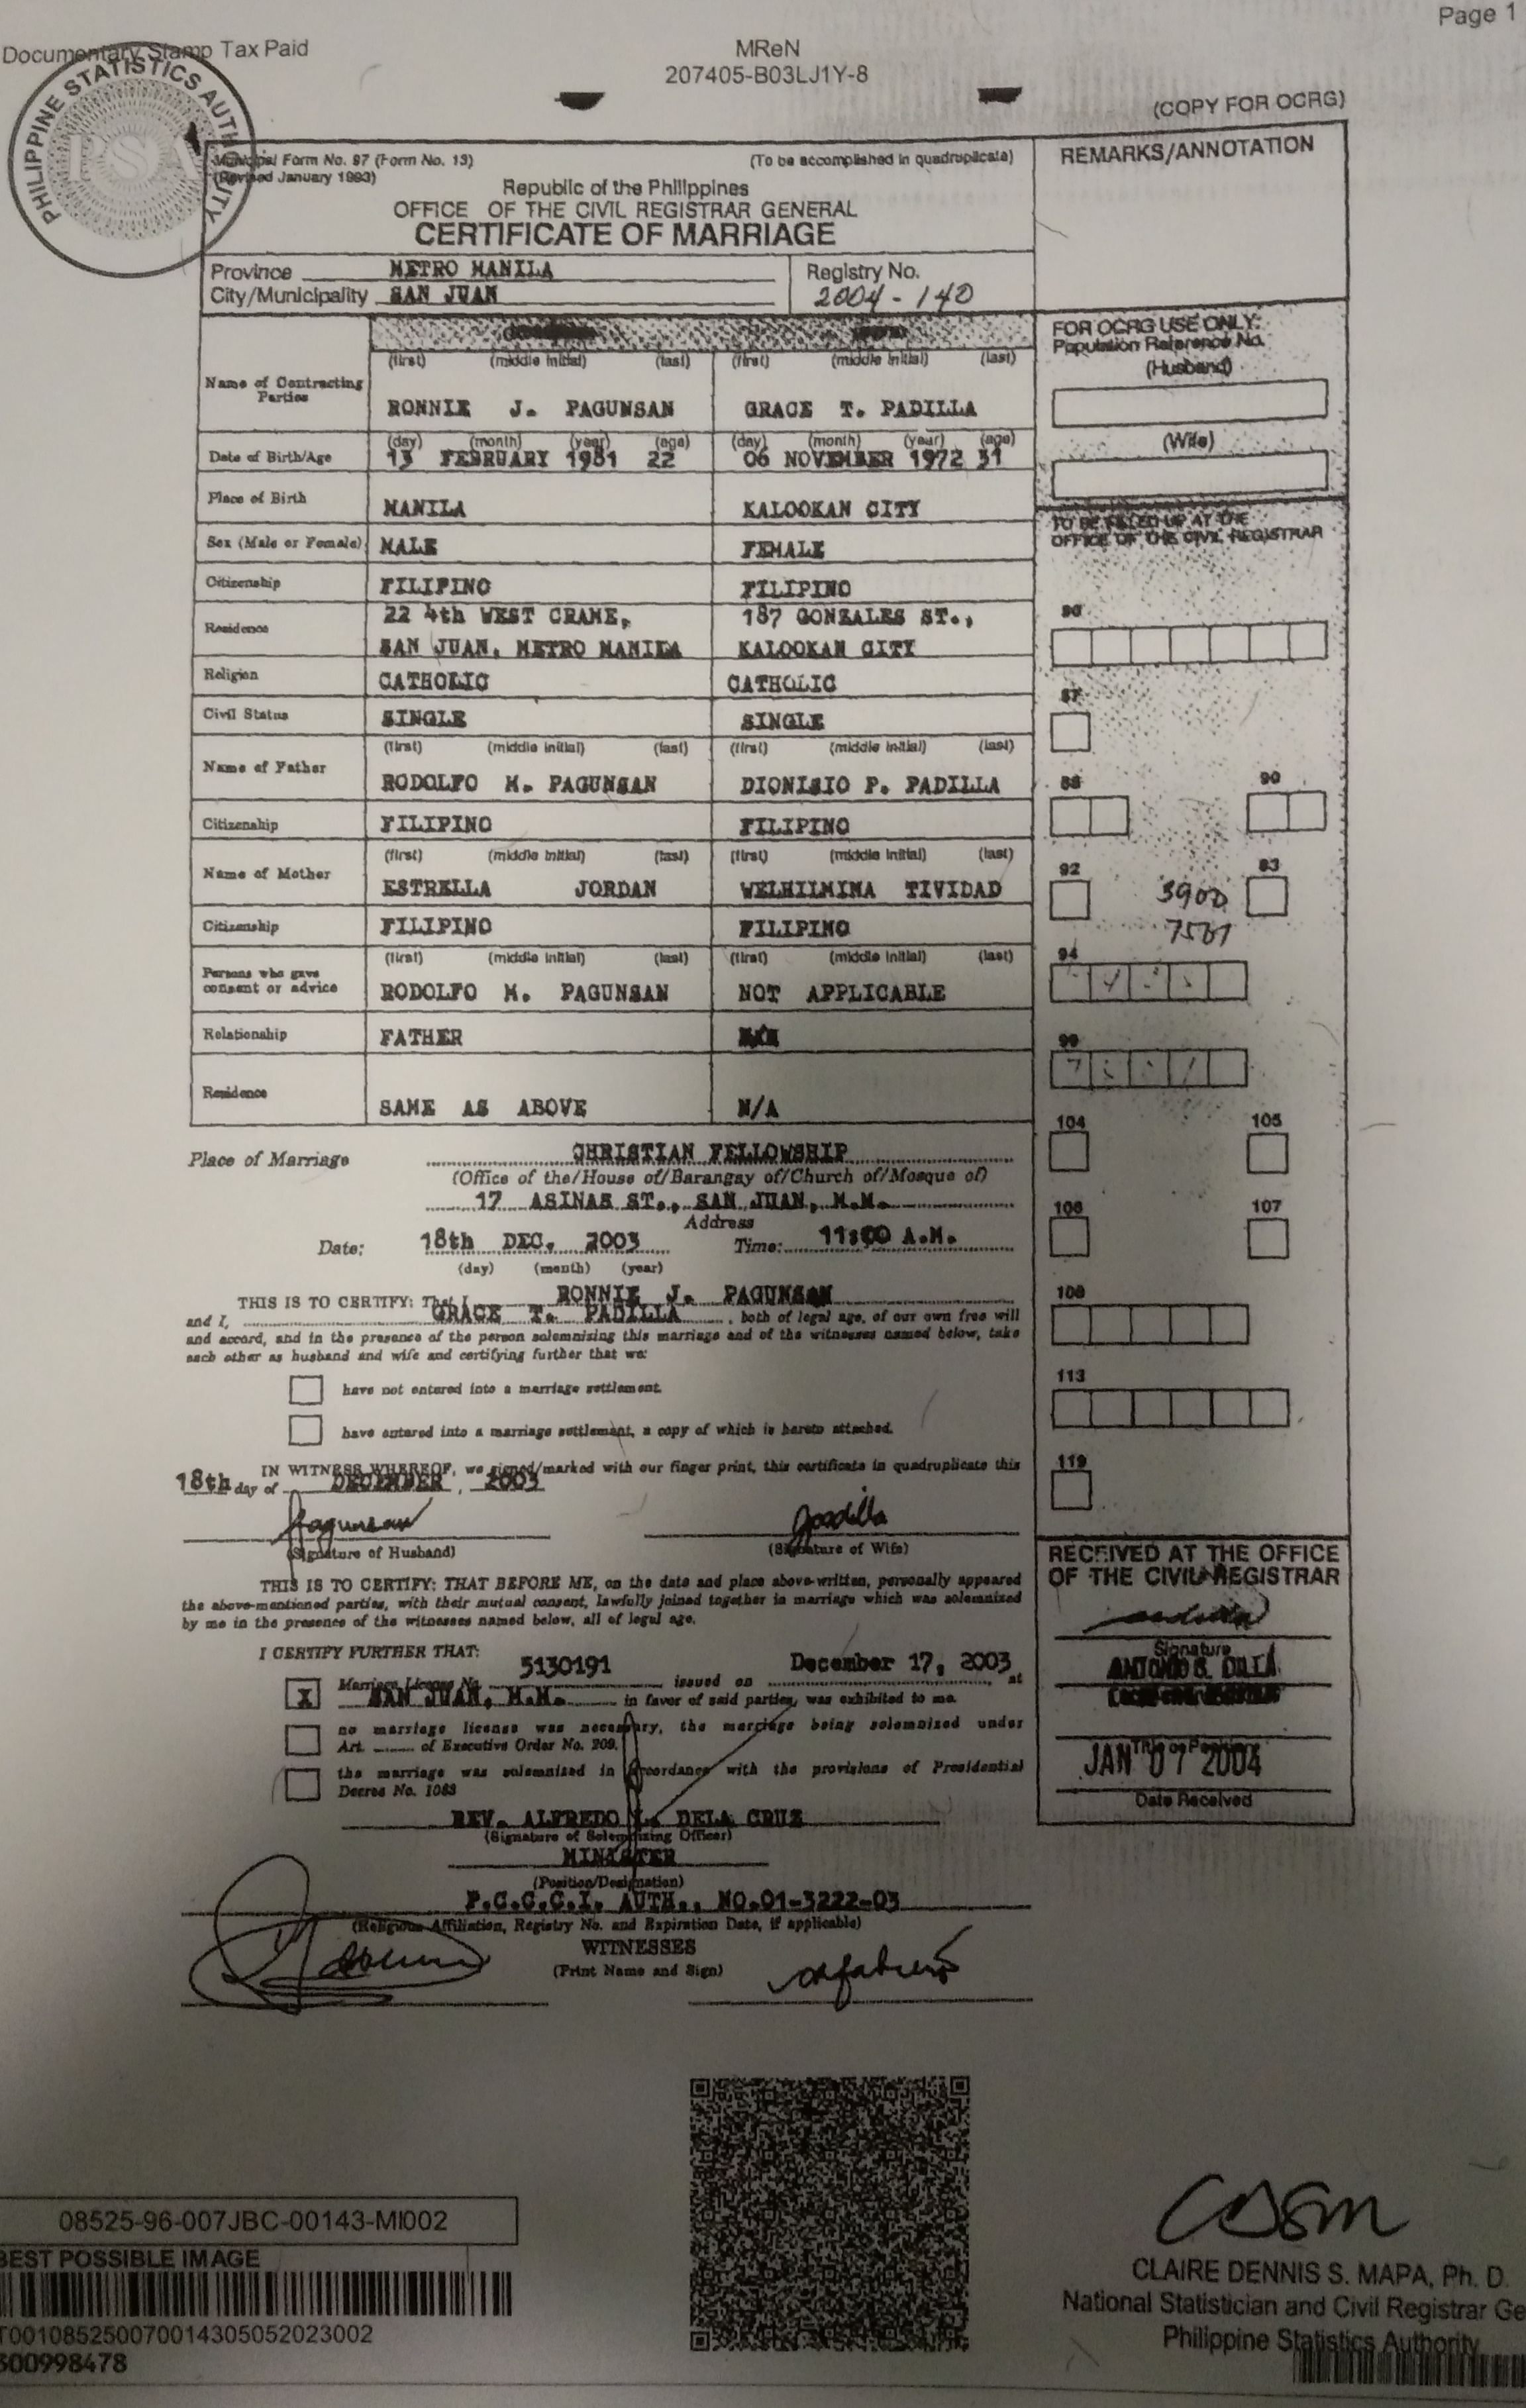 Page 1
Documentary Stamp Tax Paid
MReN
207405-B03LJ1Y-8
PHILIPPINE STATISTICS AUTHORITY
PSA
(COPY FOR OCRG)
Municipal Form No. 97 (Form No. 13)
(Revised January 1993)
(To be accomplished in quadruplicate)
Republic of the Philippines
OFFICE OF THE CIVIL REGISTRAR GENERAL
CERTIFICATE OF MARRIAGE
REMARKS/ANNOTATION
Province METRO MANILA
City/Municipality SAN JUAN
Registry No.
2004-140
(first) (middle initial) (last) (first) (middle initial) (last)
Name of Contracting Parties
RONNIE J. PAGUNSAN GRACE T. PADILLA
(day) (month) (year) (age) (day) (month) (year) (age)
Date of Birth/Age 13 FEBRUARY 1981 22 06 NOVEMBER 1972 31
Place of Birth MANILA KALOOKAN CITY
Sex (Male or Female) MALE FEMALE
Citizenship FILIPINO FILIPINO
Residence 22 4th WEST CRAME, 187 GONZALES ST.,
SAN JUAN, METRO MANILA KALOOKAN CITY
Religion CATHOLIC CATHOLIC
Civil Status SINGLE SINGLE
(first) (middle initial) (last) (first) (middle initial) (last)
Name of Father RODOLFO M. PAGUNSAN DIONISIO P. PADILLA
Citizenship FILIPINO FILIPINO
(first) (middle initial) (last) (first) (middle initial) (last)
Name of Mother ESTRELLA JORDAN WELHILMINA TIVIDAD
Citizenship FILIPINO FILIPINO
(first) (middle initial) (last) (first) (middle initial) (last)
Persons who gave consent or advice RODOLFO M. PAGUNSAN NOT APPLICABLE
Relationship FATHER
Residence SAME AS ABOVE N/A
FOR OCRG USE ONLY:
Population Reference No.
(Husband)
(Wife)
TO BE FILLED UP AT THE
OFFICE OF THE CIVIL REGISTRAR
87
90
92
3900
94
104 105
107
113
119
Place of Marriage CHRISTIAN FELLOWSHIP
(Office of the/House of/Barangay of/Church of/Mosque of)
17 ASINAS ST., SAN JUAN, M.M.
Address
Date: 18th DEC. 2003 Time: 11:00 A.M.
(day) (month) (year)
THIS IS TO CERTIFY: That I RONNIE J. PAGUNSAN
and I, GRACE T. PADILLA, both of legal age, of our own free will
and accord, and in the presence of the person solemnizing this marriage and of the witnesses named below, take
each other as husband and wife and certifying further that we:
have not entered into a marriage settlement.
have entered into a marriage settlement, a copy of which is hereto attached.
IN WITNESS WHEREOF, we signed/marked with our finger print, this certificate in quadruplicate this
18th day of DECEMBER, 2003
(Signature of Husband) (Signature of Wife)
THIS IS TO CERTIFY: THAT BEFORE ME, on the date and place above-written, personally appeared
the above-mentioned parties, with their mutual consent, lawfully joined together in marriage which was solemnized
by me in the presence of the witnesses named below, all of legal age.
I CERTIFY FURTHER THAT:
X Marriage License No. 5130191 issued on December 17, 2003 at
SAN JUAN, M.M. in favor of said parties, was exhibited to me.
no marriage license was necessary, the marriage being solemnized under
Art. of Executive Order No. 209.
the marriage was solemnized in accordance with the provisions of Presidential
Decree No. 1083
REV. ALFREDO L. DELA CRUZ
(Signature of Solemnizing Officer)
MINISTER
(Position/Designation)
P.C.G.C.I. AUTH., NO.01-3222-03
(Religious Affiliation, Registry No. and Expiration Date, if applicable)
WITNESSES
(Print Name and Sign)
RECEIVED AT THE OFFICE
OF THE CIVIL REGISTRAR
Signature
JAN 07 2004
Date Received
08525-96-007JBC-00143-MI002
BEST POSSIBLE IMAGE
T00108525007001430505​2023002
S00998478
CLAIRE DENNIS S. MAPA, Ph. D.
National Statistician and Civil Registrar Ge
Philippine Statistics Authority